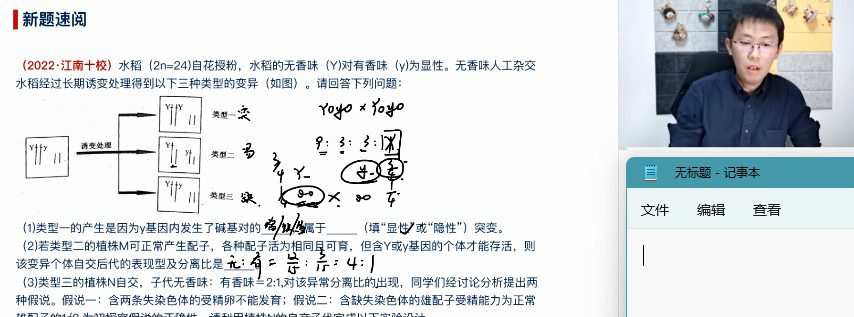 新题速阅
（2022·江南十校）水稻（2n=24)自花授粉，水稻的无香味（Y)对有香味（y)为显性。无香味人工杂交
水稻经过长期诱变处理得到以下三种类型的变异（如图）。请回答下列问题：
诱变处理
类型一 突
类型二 易
类型三 缺
YoyO × YoyO
9: 3: 3: 1
(1)类型一的产生是因为y基因内发生了碱基对的 属于_____（填“显性”或“隐性”）突变。
(2)若类型二的植株M可正常产生配子，各种配子活力相同且可育，但含Y或y基因的个体才能存活，则
该变异个体自交后代的表现型及分离比是 无:有=12/15:3/15=4:1
(3)类型三的植株N自交，子代无香味：有香味＝2:1,对该异常分离比的出现，同学们经讨论分析提出两
种假说。假说一：含两条缺失染色体的受精卵不能发育；假说二：含缺失染色体的雄配子受精能力为正常
无标题 - 记事本
文件 编辑 查看